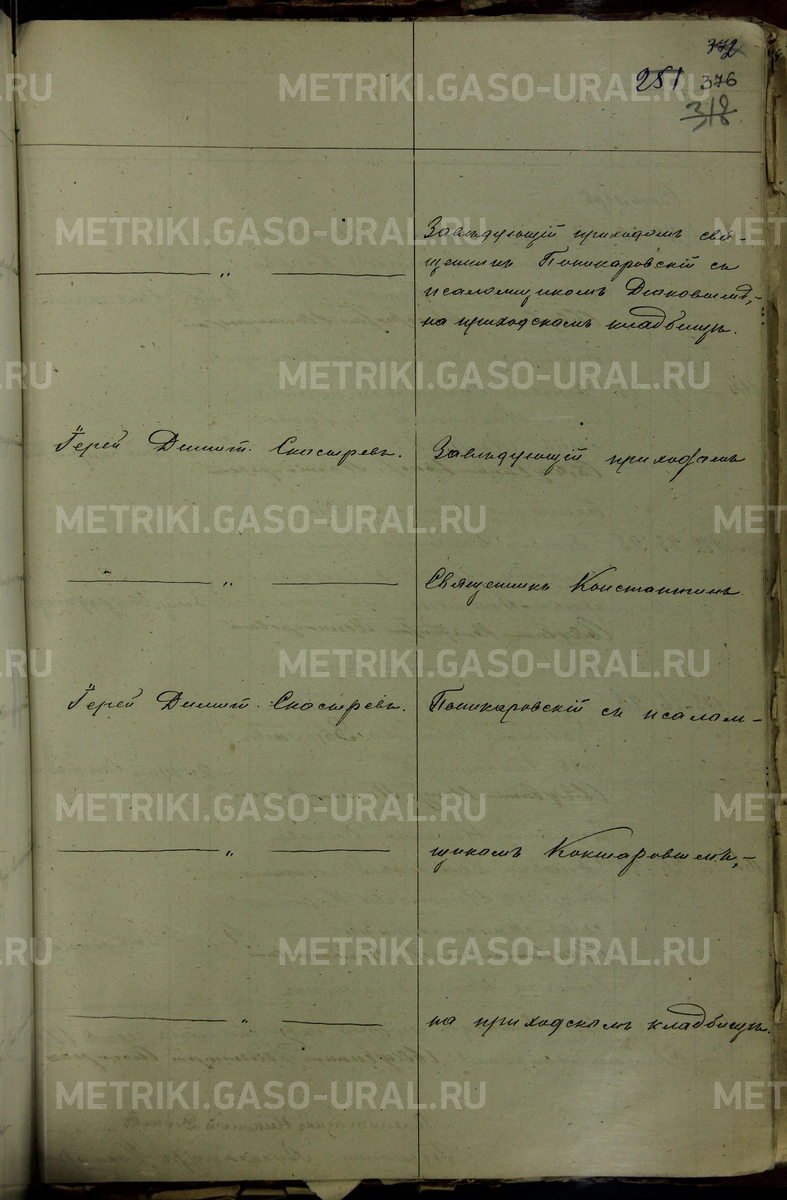 372
251 376
318
Завѣдующій приходомъ свя-
щенникъ Поникаровскій съ
— „ —
псаломщикомъ Дьяковымъ,-
на приходскомъ кладбищѣ.
Іерей Димит. Скастыревъ. Завѣдующій приходомъ
— „ — Священникъ Константинъ
Іерей Димит. Скастыревъ. Поникаровскій съ псалом-
— „ — щикомъ Кокшаровымъ,-
— „ — на приходскомъ кладбищѣ.
METRIKI.GASO-URAL.RU